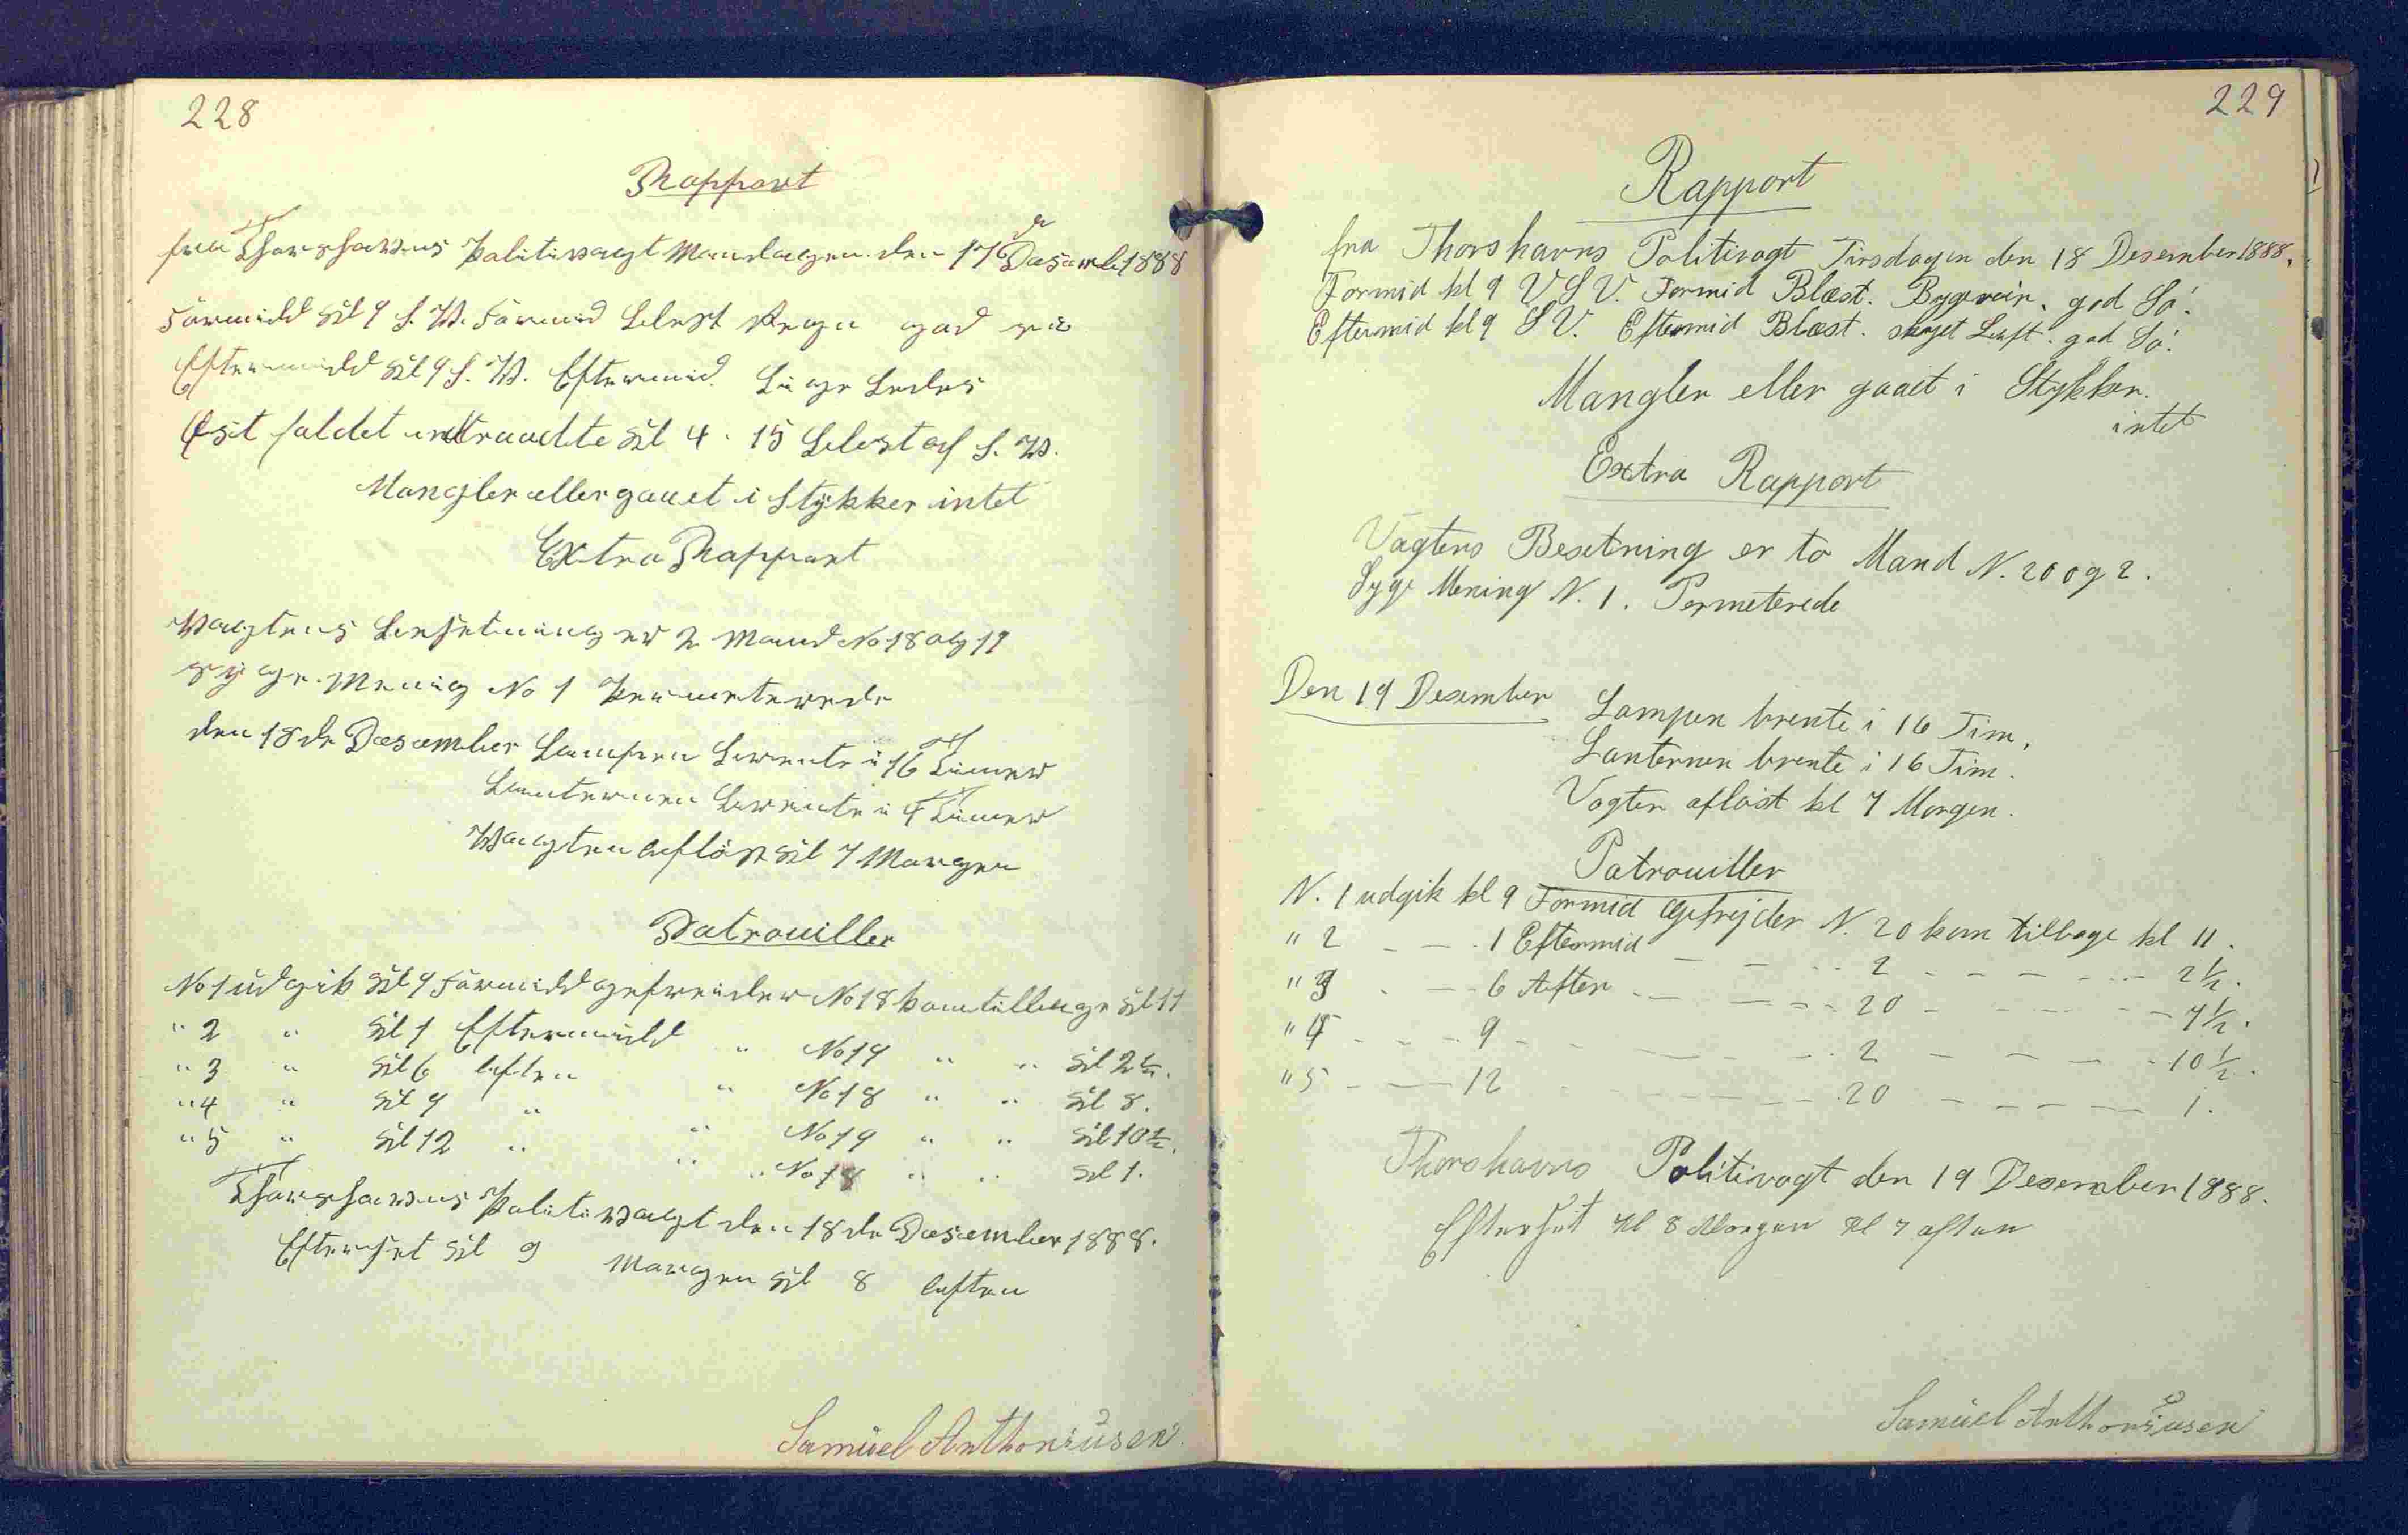 228
Rapport
fra Thorshavns Politivagt Mandagen den 17de Desemb 1888
Formidd Kl 9 S. V. Formid Blest Regn god Sö
Eftermidd Kl 9 S. V. Eftermid. Lige Ledes
faldet indtraadte Kl 4. 15 Blest af S. V.
Mangler eller gaaet i Stÿkker intet
Extra Rappart
Vagtens Besetning er 2 Mand No 18 og 19
Syge. Menig No 1 Permeterede
den 18de Desember Lampen Brente i 16 Timer
Lanternen Brente i 4 Timer
Vagten Aflöst Kl 7 Morgen
Patrouiller
No 1 udgik Kl 9 Formidd gefreider No 18 kom tillbage Kl 11
" 2 " Kl 1 Eftermidd " No 19 " " Kl 2 1/2.
" 3 " Kl 6 Aften " No 18 " " Kl 8.
" 4 " Kl 9 " " No 19 " " Kl 10 1/2.
" 5 " Kl 12 " " " No 18 " " Kl 1.
Thorshavns Politivagt den 18de Desember 1888.
Efterset Kl 9 Morgen Kl 8 Aften
Samüel Anthoniusen
229
Rapport
fra Thorshavns Politivagt Tirsdagen den 18 Desember 1888.
Formid kl 9 V S V. Formid Blæst. Bygeveir. god Sö.
Eftermid kl 9 S V. Eftermid Blæst. skyet Luft. god Sö.
Mangler eller gaait i Stykker.
intet
Extra Rapport
Vagtens Besetning er to Mand N. 20 og 2.
Syge Mening N. 1. Permeterede
Den 19 Desember Lampen brente i 16 Tim.
Lanternen brente i 16 Tim.
Vagten afløst kl 7 Morgen.
Patrouiller
N. 1 udgik kl 9 Formid Gefrejder N. 20 kom tilbage kl 11.
" 2 - - 1 Eftermid - - - 2 - - - - 2 1/2.
" 3 - - 6 Aften - - - - 20 - - - - 7 1/2.
" 4 - - - 9 - - - - - 2 - - - - 10 1/2.
" 5 - - 12 - - - - 20 - - - - 1.
Thorshavns Politivagt den 19 Desember 1888.
Efterset Kl 8 Morgen Kl 7 aften
Samüel Anthoniusen